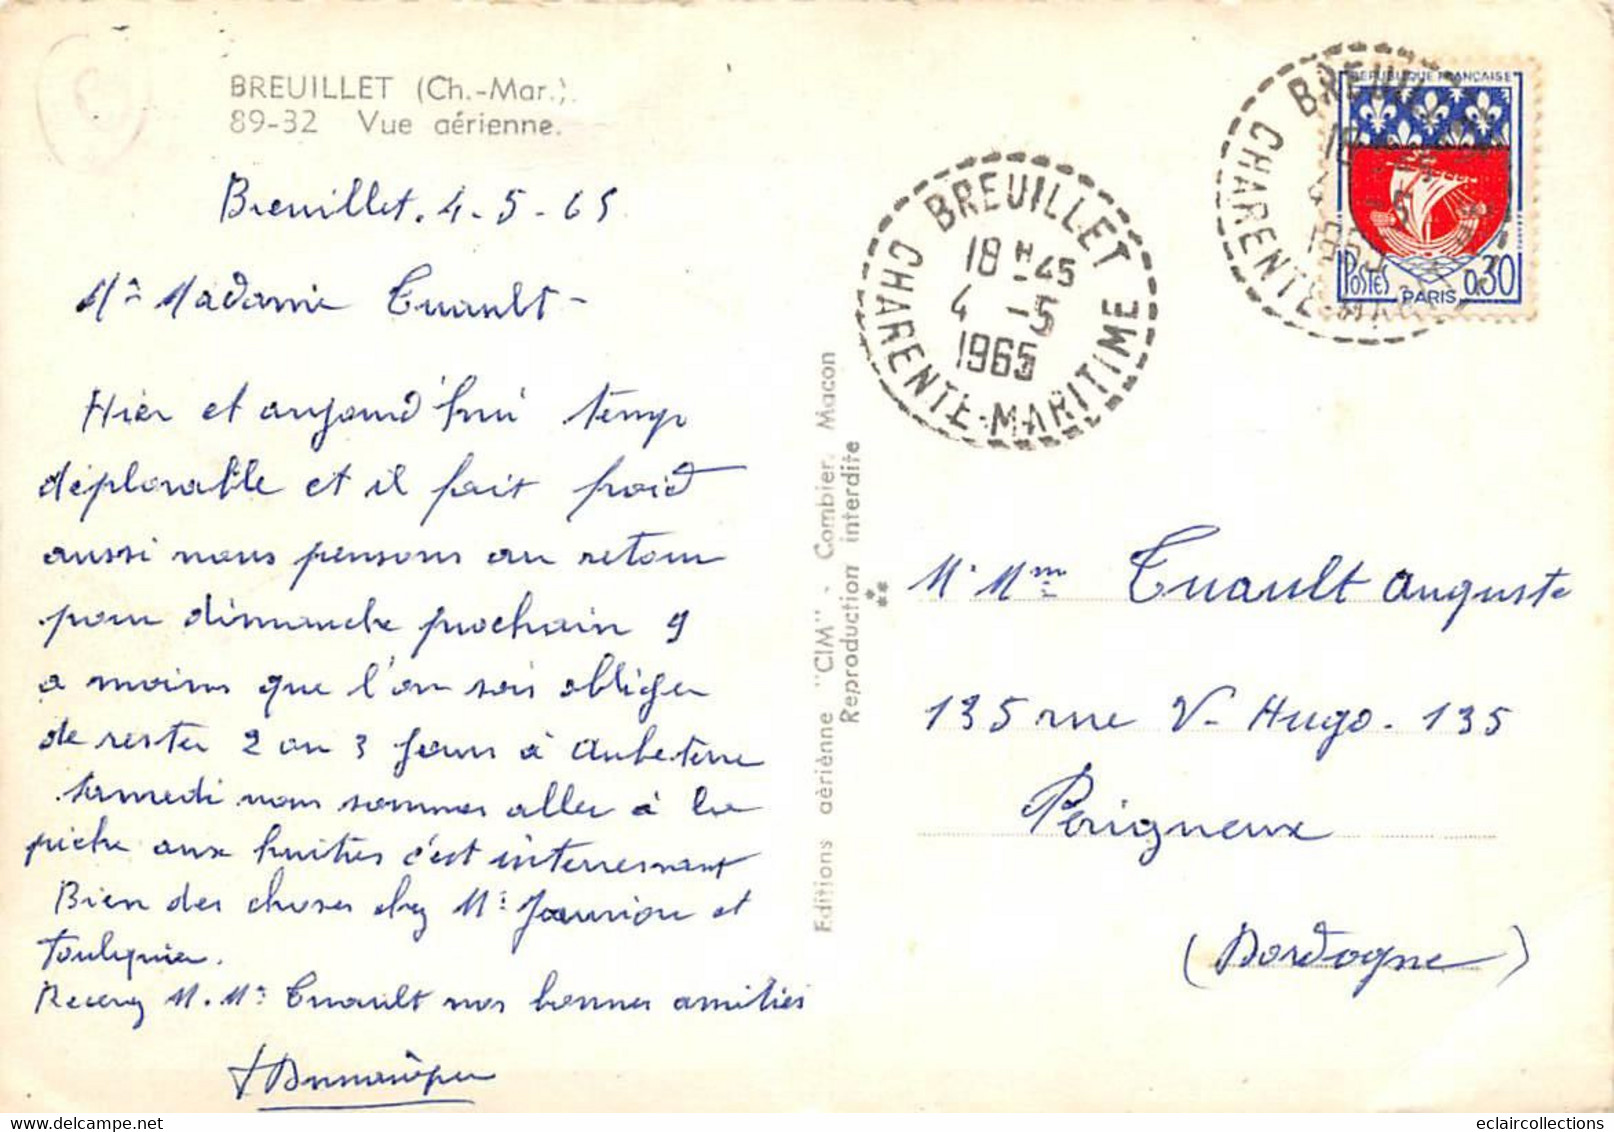 BREUILLET (Ch.-Mar.).
89-32 Vue aérienne.
Breuillet. 4-5-65
Mr Madame Tuault-
Hier et aujourd'hui temps
déplorable et il fait froid
aussi nous pensons au retour
pour dimanche prochain 9
a moins que l'on soi obliger
de rester 2 ou 3 jours à Aubeterre
samedi nous sommes aller à la
pèche aux huitres c'est interressant
Bien des choses chez Mr et
Recevez M. Me Tuault nos bonnes amitiés
Editions aérienne "CIM" - Combier, Macon
Reproduction interdite
BREUILLET
18 H 45
4 -5
1965
CHARENTE-MARITIME
BREUILLET
18
4 -5
1965
CHARENTE-MARITIME
REPUBLIQUE FRANÇAISE
POSTES PARIS 0,30
M. Mme Tuault Auguste
135 rue V- Hugo. 135
Périgueux
(Dordogne)
eclaircollections